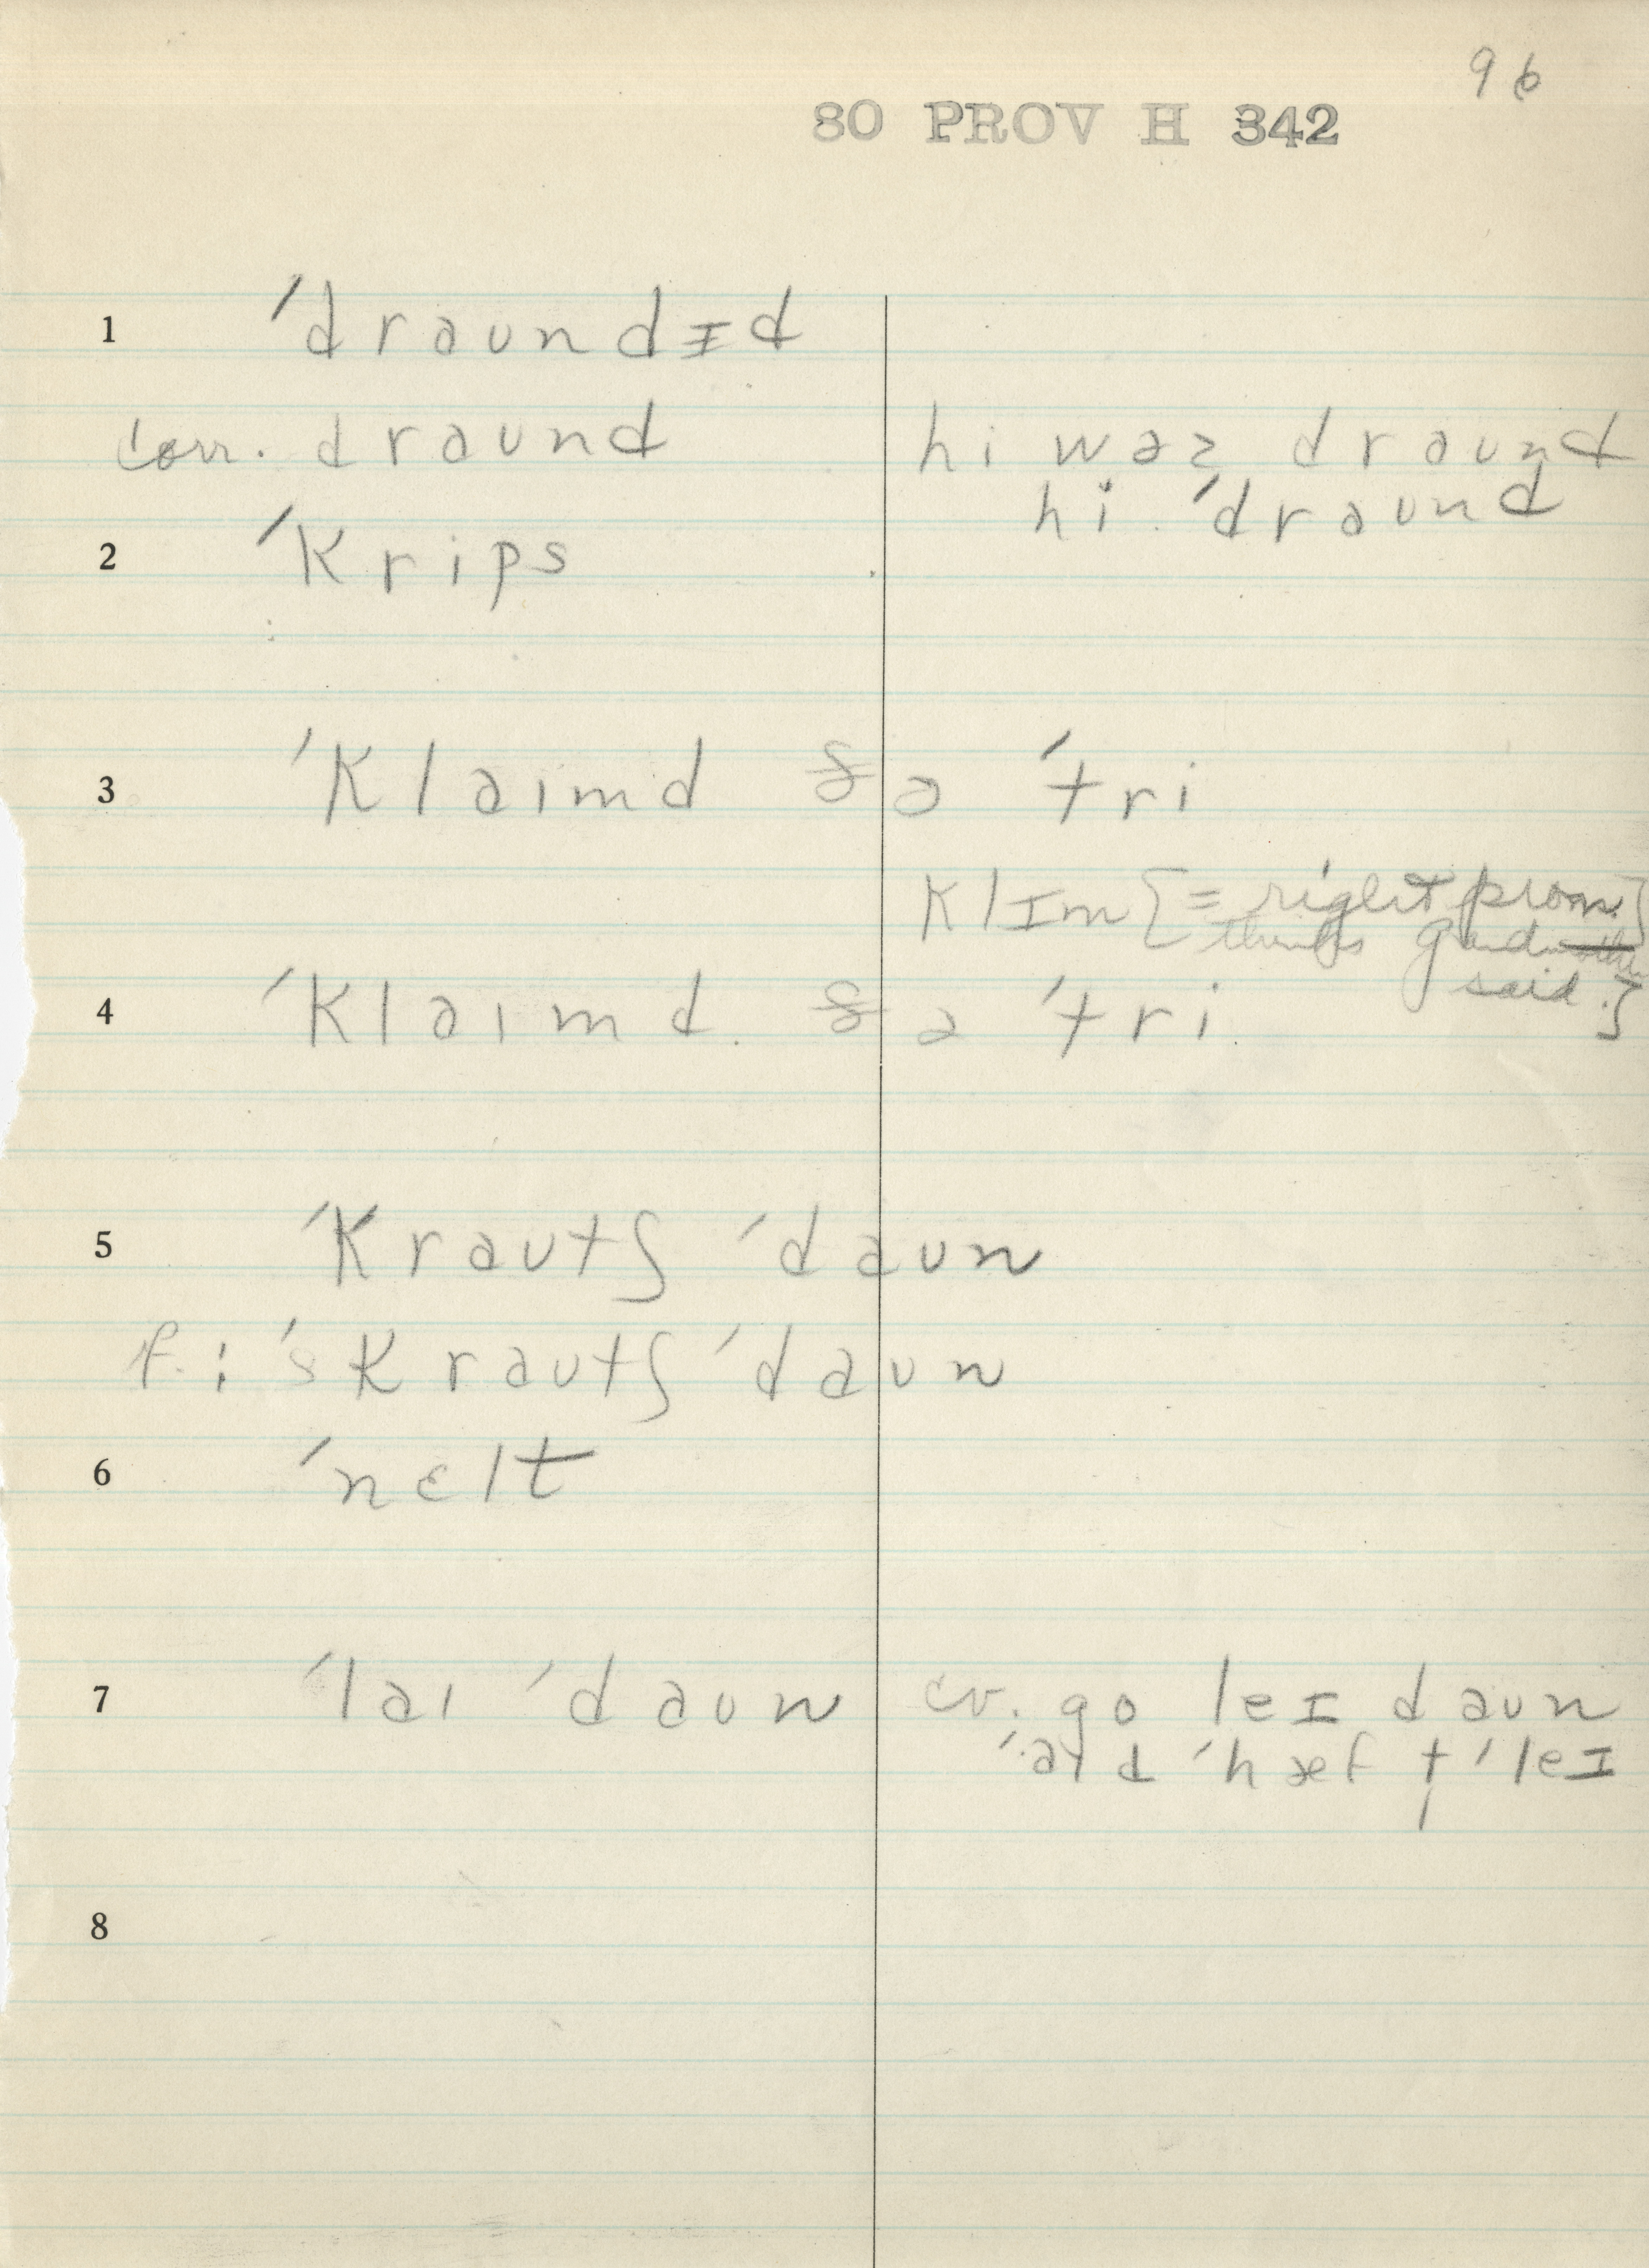 96
80 PROV H 342
1 ˊdraundɪd
corr. draund hi wəz draund
hi ˊdraund
2 ˊkrips
3 ˊklaɪmd ðə ˊtri
klɪm [= right pron.
thinks grand
said.]
4 ˊklaɪmd ðə ˊtri
5 ˊkraʊtʃ ˊdaʊn
f. : ˊskraʊtʃ ˊdaʊn
6 ˊnɛlt
7 ˊlaɪ ˊdaʊn cv. go leɪ daʊn
ˊaɪd ˊhæf tˊleɪ
8